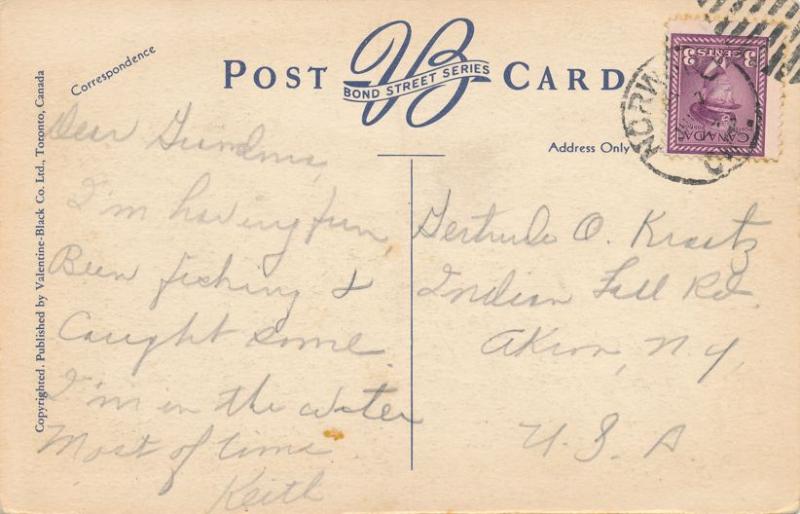 Correspondence
POST CARD
VB
BOND STREET SERIES
Address Only
3 CENTS 3
CANADA
NORW
ONT.
Copyrighted. Published by Valentine-Black Co. Ltd., Toronto, Canada
Dear Grandma,
I'm having fun,
Been fishing &
Caught some.
I'm in the water
Most of time.
Keith
Gertrude O. Kraatz
Indian Fall Rd.
Akron, N.Y.
U.S.A.